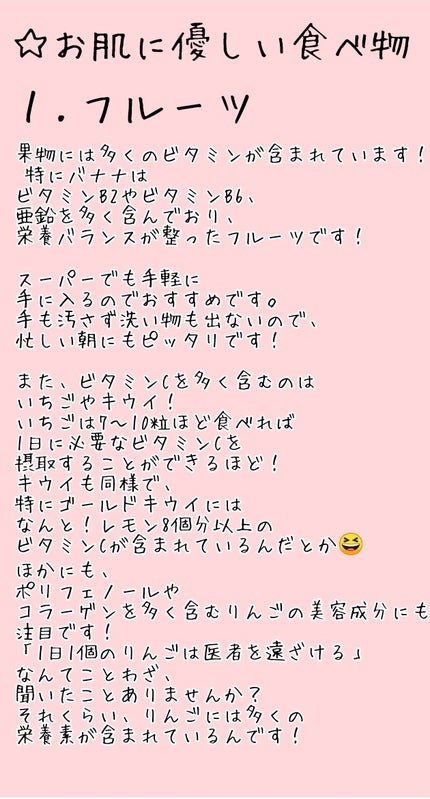 ☆お肌に優しい食べ物
1.フルーツ
果物には多くのビタミンが含まれています!
特にバナナは
ビタミンB2やビタミンB6、
亜鉛を多く含んでおり、
栄養バランスが整ったフルーツです!
スーパーでも手軽に
手に入るのでおすすめです。
手も汚さず洗い物も出ないので、
忙しい朝にもピッタリです!
また、ビタミンCを多く含むのは
いちごやキウイ!
いちごは7〜10粒ほど食べれば
1日に必要なビタミンCを
摂取することができるほど!
キウイも同様で、
特にゴールドキウイには
なんと!レモン8個分以上の
ビタミンCが含まれているんだとか😆
ほかにも、
ポリフェノールや
コラーゲンを多く含むりんごの美容成分にも
注目です!
「1日1個のりんごは医者を遠ざける」
なんてことわざ、
聞いたことありませんか?
それくらい、りんごには多くの
栄養素が含まれているんです!